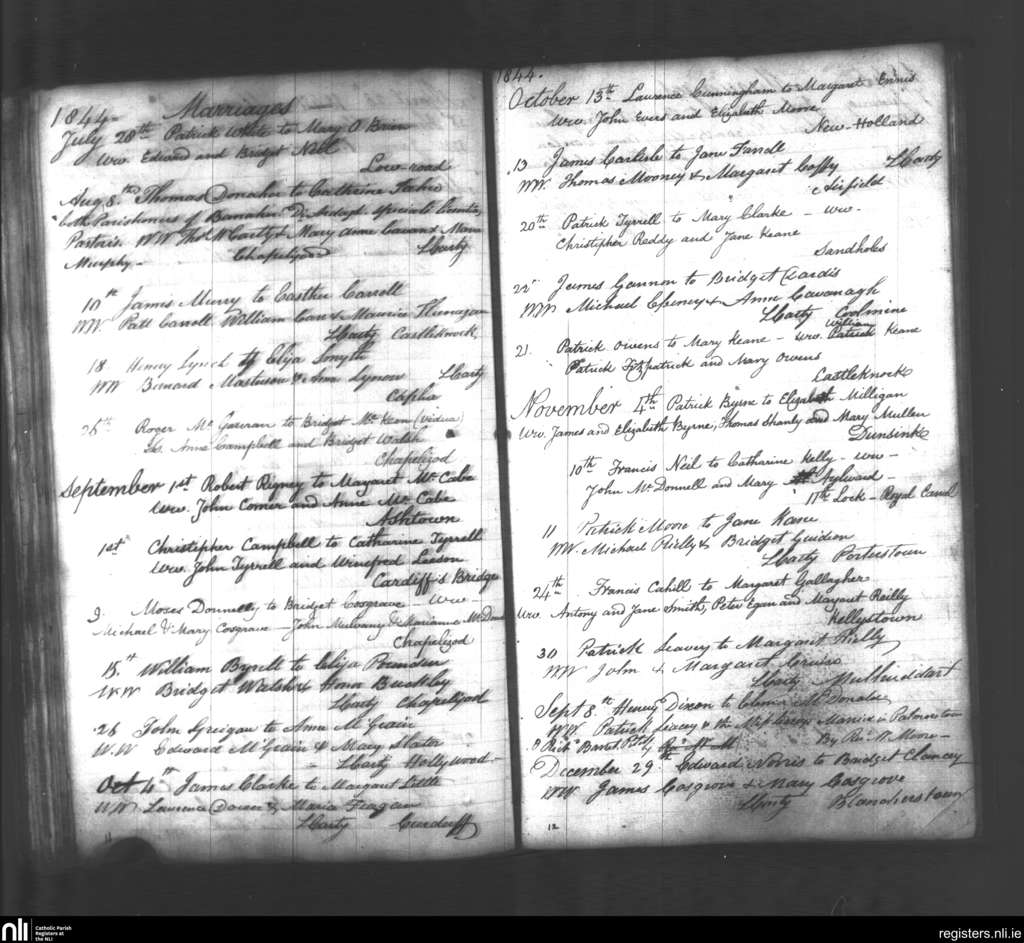 1844 Marriages
July 28th Patrick White to Mary O Brien
Ww. Edward and Bridget Neill
Low-road
Aug 8th Thomas Donahu to Catherine
both Parishoners of Banaher Specialis
Pastoris. WW Thos McCarty & Mary Anne & Maria
Murphy - Chapelizod LCarty
10th James Murry to Easther Carroll
WW. Patt Carroll William Carr & Maurice
LCarty Castleknock
18 Henry Lynch to Eliza Smyth
WW Bernard Masterson & Ann LCarty
26th Roger Mc to Bridget Mc (vidua)
Ss. Anne Campbell and Bridget Walsh
Chapelizod
September 1st Robert Rigney to Margaret Mc Cabe
Ww. John Comer and Anne Mc Cabe
Ashtown
1st Christopher Campbell to Catharine Tyrrell
Ww. John Tyrrell and Winefred Leeson
Cardiff's Bridge
9. Moses Donnelly to Bridget Cosgrave - Ww -
Michael & Mary Cosgrave - John Mulvany & Marianne
Chapelizod
15th William Byrell to Eliza
WW Bridget Walsh & Honor Buckley
LCarty Chapelizod
28 John to Anne McGrain
W.W Edward McGrain & Mary Slator
LCarty Hollywood -
Oct 4th James Clarke to Margaret Little
WW Laurence & Maria
LCarty
1844.
October 13th Laurence Cunningham to Margaret Ennis
Ww. John Evers and Elizabeth Moore
New-Holland
13 James Carlisle to Jane Farrell
WW. Thomas Mooney & Margaret Coffy LCarty
Airfield
20th Patrick Tyrrell to Mary Clarke - Ww -
Christopher Reddy and Jane Keane
Sandholes
22 James Gannon to Bridget Cardis
WW Michael & Anne Cavanagh
LCarty Coolmine
21. Patrick Owens to Mary Keane - Ww. Patrick William Keane
Patrick Fitzpatrick and Mary Owens
Castleknock
November 4th Patrick Byrne to Elizabeth Milligan
Ww. James and Elizabeth Byrne, Thomas Shanly and Mary Mullen
Dunsink
10th Francis Neil to Catharine Kelly - Ww -
John McDonnell and Mary Aylward -
17th Lock - Royal Canal
11 Patrick Moore to Jane Kane
WW. Michael Rielly & Bridget Guidon
LCarty Porterstown
24th Francis Cahill to Margaret Gallagher
Ww Antony and Jane Smith, Peter Egan and Margaret Reilly
Kellystown
30 Patrick Leavery to Margaret Rielly
WW John & Margaret
LCarty Mulhuddart
Sept 8th Henry Dixon to McDonald
WW. Patrick & Married in Palmerstown
By Revd W. Moore -
December 29th Edward Norris to Bridget Clancey
WW James Cosgrove & Mary Cosgrove
LCarty Blanchestown
12
nli
Catholic Parish
Registers at
the NLI
registers.nli.ie